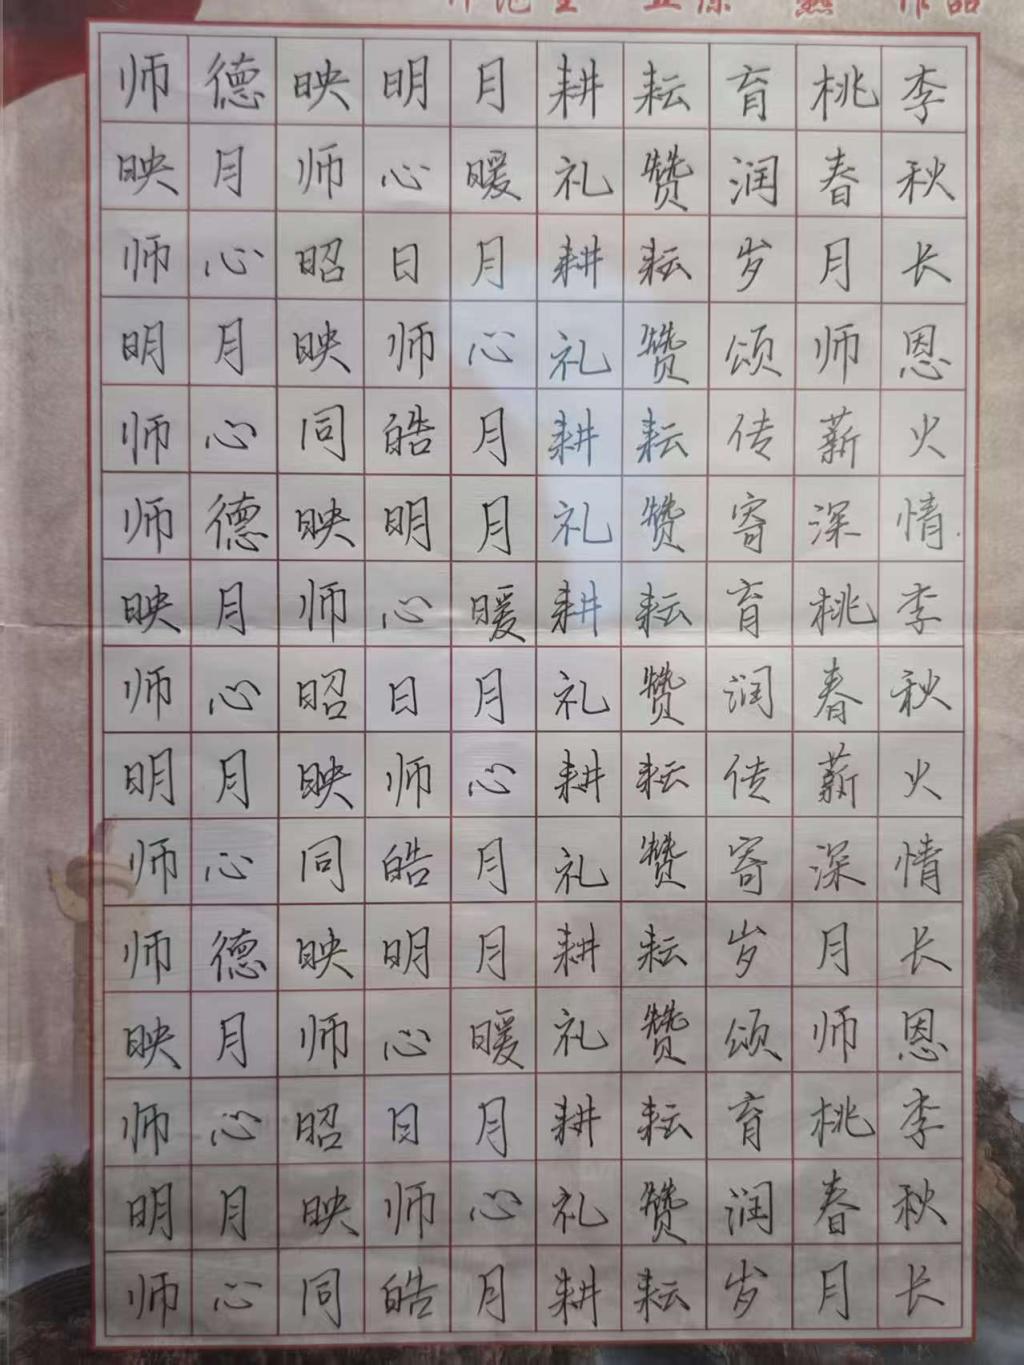 师德映明月耕耘育桃李
映月师心暖礼赞润春秋
师心昭日月耕耘岁月长
明月映师心礼赞颂师恩
师心同皓月耕耘传薪火
师德映明月礼赞寄深情
映月师心暖耕耘育桃李
师心昭日月礼赞润春秋
明月映师心耕耘传薪火
师心同皓月礼赞寄深情
师德映明月耕耘岁月长
映月师心暖礼赞颂师恩
师心昭日月耕耘育桃李
明月映师心礼赞润春秋
师心同皓月耕耘岁月长